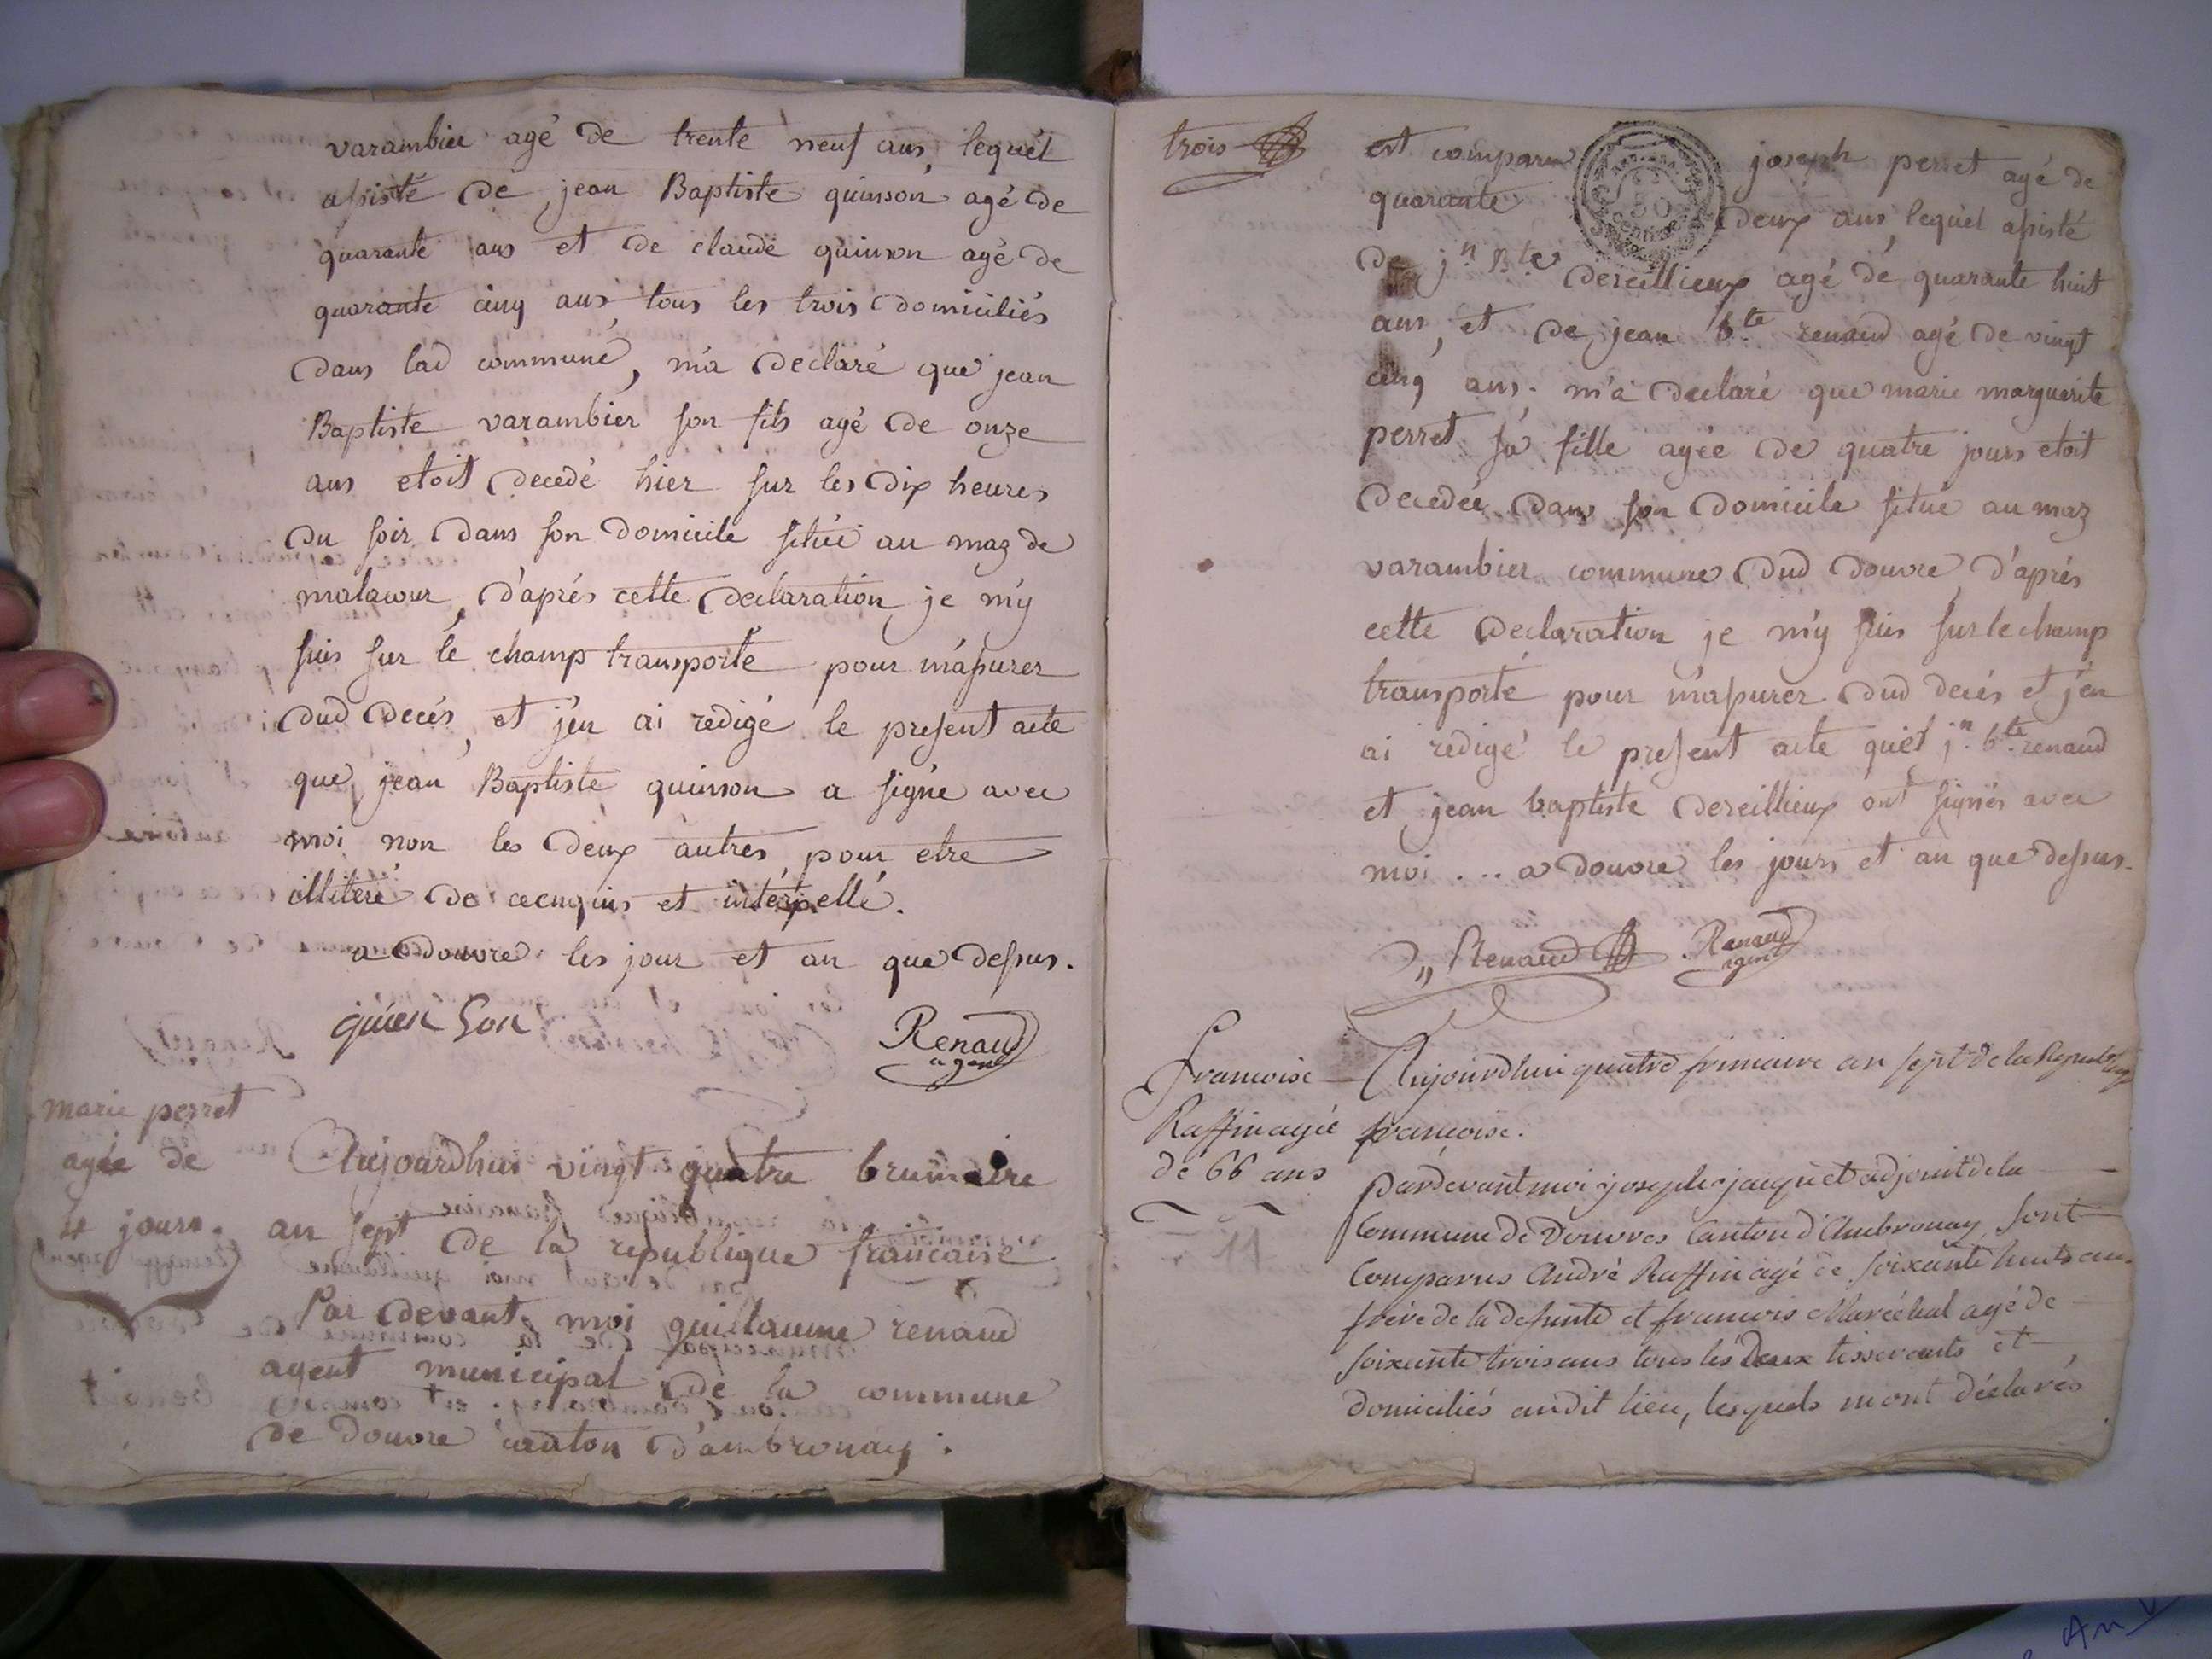 varambier agé de trente neuf ans, lequél
assisté de jean Baptiste quinson agé de
quarante ans et de claude quinson agé de
quarante cinq ans, tous les trois domiciliés
dans lad commune, m'a declaré que jean
Baptiste varambier son fils agé de onze
ans etoit decedé hier sur les dix heures
du soir dans son domicile situé au maz de
malacour, d'aprés cette declaration je m'y
suis sur le champ transporté pour m'assurer
dud decés, et j'en ai redigé le present acte
que jean Baptiste quinson a signé avec
moi non les deux autres pour etre
illiteré de ce enquis et intérpellé.
a douvre les jour et an que dessus.
quien Son
Renaud
agent
marie perret
agée de
4 jours.
Aujourdhui vingt quatre brumaire
an sept de la republique francaise
Par devant moi guillaume renaud
agent municipal de la commune
de douvre canton d'ambronay.
trois
est comparu joseph perret agé de
quarante deux ans, lequel assisté
de jn Bte dereillieux agé de quarante huit
ans, et de jean bte renaud agé de vingt
cinq ans. m'a declaré que marie marguerite
perret sa fille agée de quatre jours etoit
decedée dans son domicile situé au maz
varambier commune dud douvre, d'aprés
cette declaration je m'y suis sur le champ
transporté pour m'assurer dud decés et j'en
ai redigé le present acte quet jn bte renaud
et jean baptiste dereillieux ont signés avec
moi ... a douvre les jours et an que dessus.
Renaud
Renaud
agent
50
francoise
Raffin agée
de 66 ans
11
Aujourdhui quatre frimaire an sept de la Republique
francoise.
pardevant moi joseph jacquet adjoint de la
Commune de Douvres Canton d'Ambronay, sont
Comparus André Raffin agé de soixante huit ans
frère de la defunte et francois Maréchal agé de
soixante trois ans tous les deux tisserants et
domiciliés audit lieu, lesquels mont déclarés
An V